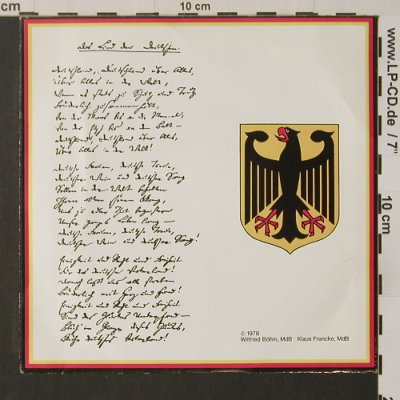 10 cm
cm
Das Lied der Deutschen.
Deutschland, Deutschland über Alles,
Über Alles in der Welt,
Wenn es stets zu Schutz und Trutz
Brüderlich zusammenhält,
Von der Maas bis an die Memel,
Von der Etsch bis an den Belt –
Deutschland, Deutschland über Alles,
Über Alles in der Welt!
Deutsche Frauen, deutsche Treue,
Deutscher Wein und deutscher Sang
Sollen in der Welt behalten
Ihren alten schönen Klang,
Uns zu edler That begeistern
Unser ganzes Leben lang –
Deutsche Frauen, deutsche Treue,
Deutscher Wein und deutscher Sang!
Einigkeit und Recht und Freiheit
Für das deutsche Vaterland!
Danach laßt uns alle streben
Brüderlich mit Herz und Hand!
Einigkeit und Recht und Freiheit
Sind des Glückes Unterpfand –
Blüh im Glanze dieses Glückes,
Blühe deutsches Vaterland!
© 1978
Wilfried Böhm, MdB · Klaus Francke, MdB
www.LP-CD.de / 7"
10 cm